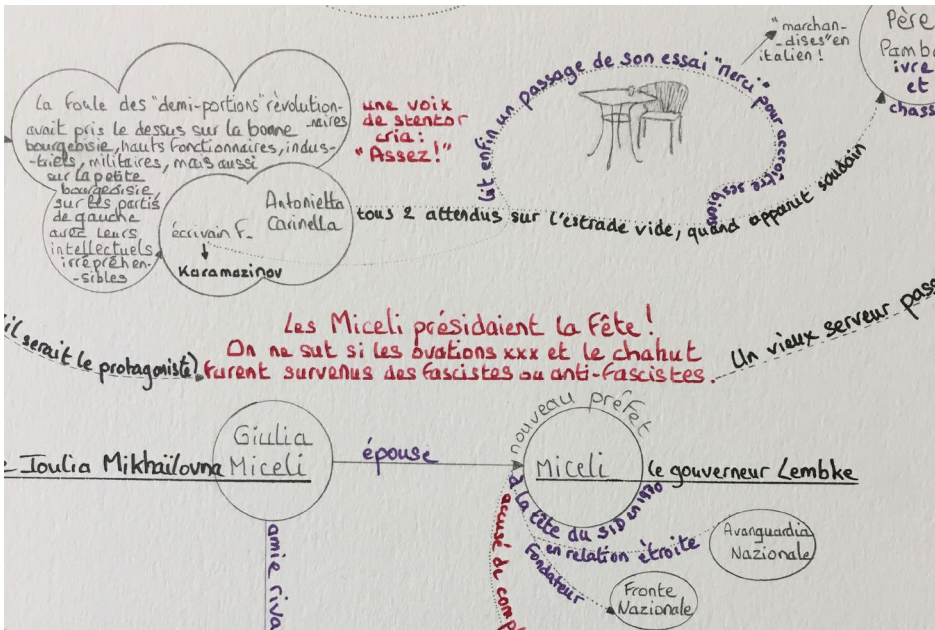 "marchan-
-dises" en
italien !
Père
Pamb
ivre
et
chass
La foule des "demi-portions" révolution-
-naires
avait pris le dessus sur la bonne
bourgeoisie, hauts fonctionnaires, indus-
-triels, militaires, mais aussi
sur la petite
bourgeoisie,
sur les partis
de gauche
avec leurs
intellectuels
irrépréhen-
-sibles
une voix
de stentor
cria :
"Assez !"
(lit enfin un passage de son essai "merci" pour accroître ses biens
écrivain F.
Karamazinov
Antonietta
Carinella
tous 2 attendus sur l'estrade vide, quand apparut soudain
Les Miceli présidaient la Fête !
On ne sut si les ovations xxx et le chahut
furent survenus des fascistes ou anti-fascistes.
il serait le protagoniste)
Un vieux serveur pass
Ioulia Mikhaïlovna
Giulia
Miceli
épouse
nouveau préfet
Miceli
le gouverneur Lembke
à la tête du SID en 1970
en relation étroite
Avanguardia
Nazionale
fondateur
Fronte
Nazionale
accusé de comp
amie riva